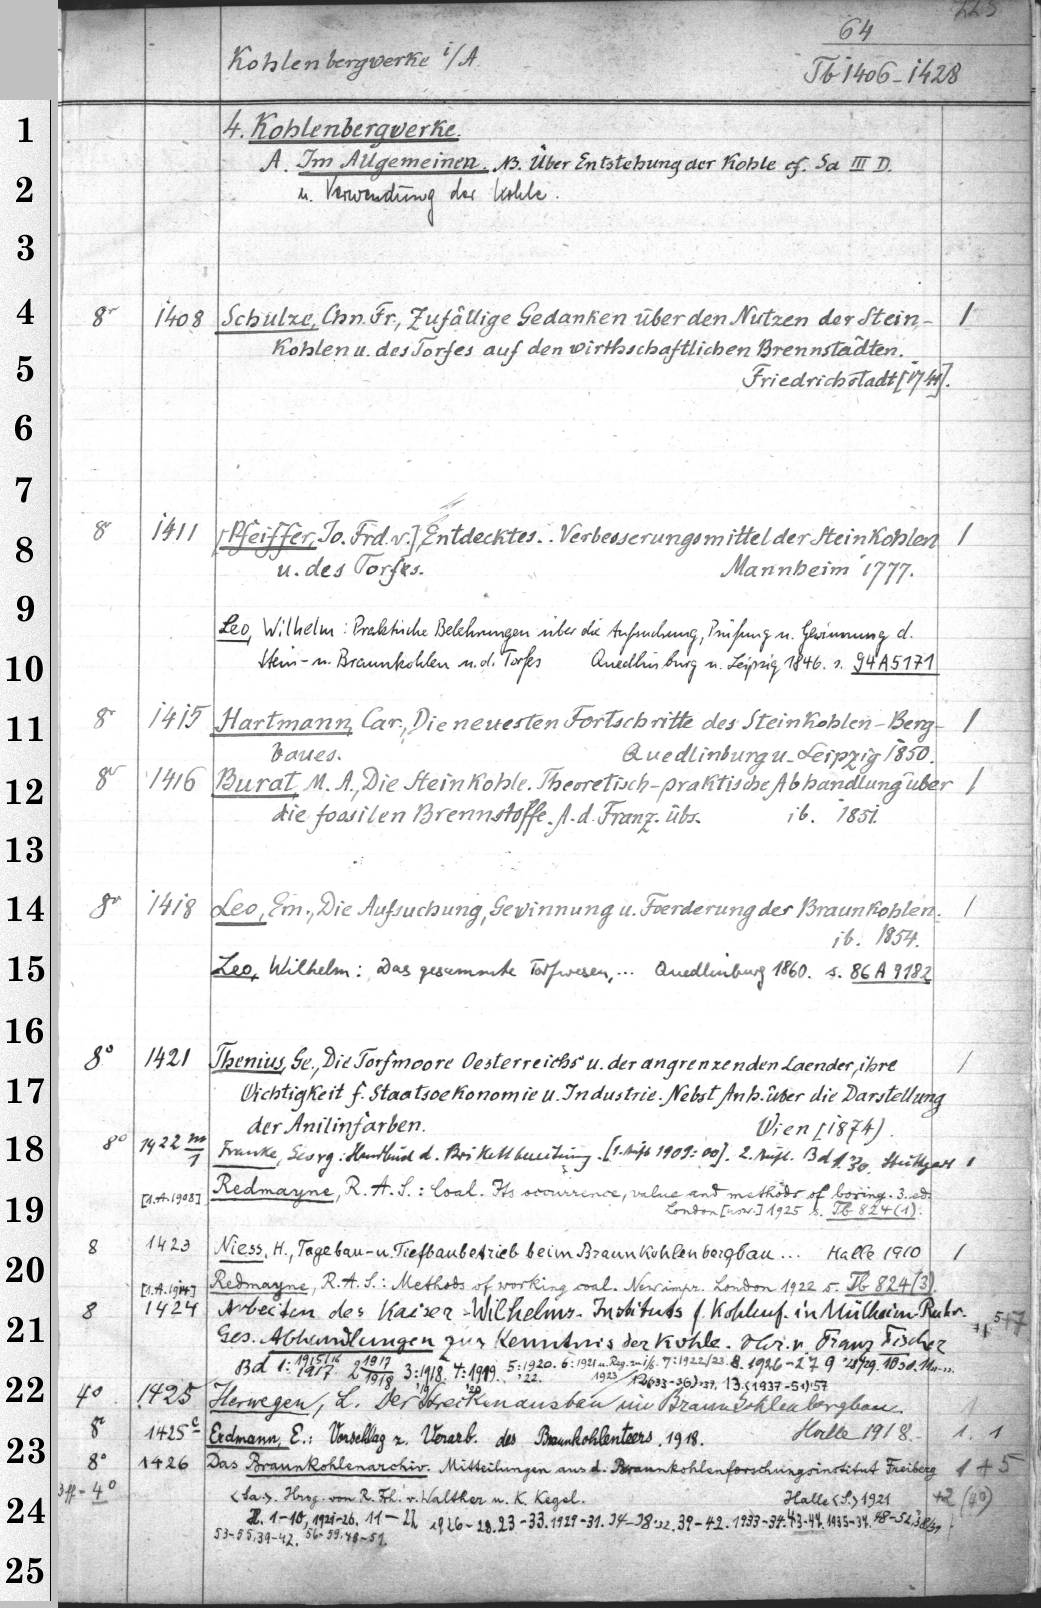 223
64
Kohlenbergwerke i/A.
Tb 1406-1428
1
4. Kohlenbergwerke.
A. Im Allgemeinen. NB. Über Entstehung der Kohle cf. Sa III D.
2
u. Verwendung der Kohle.
3
4
8° 1408 Schulze, Chn. Fr., Zufällige Gedanken über den Nutzen der Stein- 1
Kohlen u. des Torfes auf den wirthschaftlichen Brennstädten.
5
Friedrichstadt [1741].
6
7
8° 1411 [Pfeiffer, Jo. Frd. v.] Entdecktes.. Verbesserungsmittel der Steinkohlen 1
8
u. des Torfes. Mannheim 1777.
9
Leo, Wilhelm: Praktische Belehrungen über die Aufsuchung, Prüfung u. Gewinnung d.
10
Stein- u. Braunkohlen u. d. Torfes Quedlinburg u. Leipzig 1846. s. 94A5171
11
8° 1415 Hartmann, Car., Die neuesten Fortschritte des Steinkohlen-Berg- 1
baues. Quedlinburg u. Leipzig 1850.
12
8° 1416 Burat, M. A., Die Steinkohle. Theoretisch-praktische Abhandlung über 1
die fossilen Brennstoffe. A. d. Franz. übs. ib. 1851.
13
14
8° 1418 Leo, Em., Die Aufsuchung, Gewinnung u. Foerderung der Braunkohlen. 1
ib. 1854.
15
Leo, Wilhelm: Das gesammte Torfwesen, ... Quedlinburg 1860. s. 86 A 9182
16
8° 1421 Thenius, Ge., Die Torfmoore Oesterreichs u. der angrenzenden Laender, ihre 1
17
Wichtigkeit f. Staatsoekonomie u. Industrie. Nebst Anh. über die Darstellung
der Anilinfarben. Wien [1874].
18
8° 1422 m/1 Franke, Georg: Handbuch d. Brikettbereitung. [1. Aufl. 1909:00]. 2. Aufl. Bd 1. 30. Stuttgart 1
[1.A. 1908] Redmayne, R. A. S.: Coal. Its occurrence, value and methods of boring. 3. ed.
19
London [usw.] 1925 s. Tb 824(1).
8 1423 Niess, H., Tagebau- u. Tiefbaubetrieb beim Braunkohlenbergbau ... Halle 1910 1
20
[1.A. 1914] Redmayne, R. A. S.: Methods of working coal. New impr. London 1922 s. Tb 824(3).
8 1424 Arbeiten des Kaiser-Wilhelms-Instituts f. Kohlenf. in Mülheim-Ruhr.
21
Ges. Abhandlungen zur Kenntnis der Kohle. Hrsg. v. Franz Fischer
Bd 1: 1915/16 1917 2 1917 1918 3:1918. 4:1919. 5:1920. 6:1921 u. Reg. 7:1922/23. 8. 1926-27 9
12(33-36):37. 13.(1937-51):57
22
4° 1425 Herwegen, L. Der Streckenausbau im Braunkohlenbergbau. 1
Halle 1918.
8° 1425c Erdmann, E.: Vorschlag z. Verarb. des Braunkohlenteers. 1918. 1. 1
23
8° 1426 Das Braunkohlenarchiv. Mitteilungen aus d. Braunkohlenforschungsinstitut Freiberg 1+5
3ff - 4° <Sa.>. Hrsg. von R. Frh. v. Walther u. K. Kegel. Halle <S.> 1921 +2 (4°)
24
H. 1-10, 1921-26. 11-22 1926-28. 23-33. 1929-31. 34-38:32. 39-42. 1933-34. 43-47. 1935-37. 48-52.
53-55, 39-42. 56-59. 48-51.
25